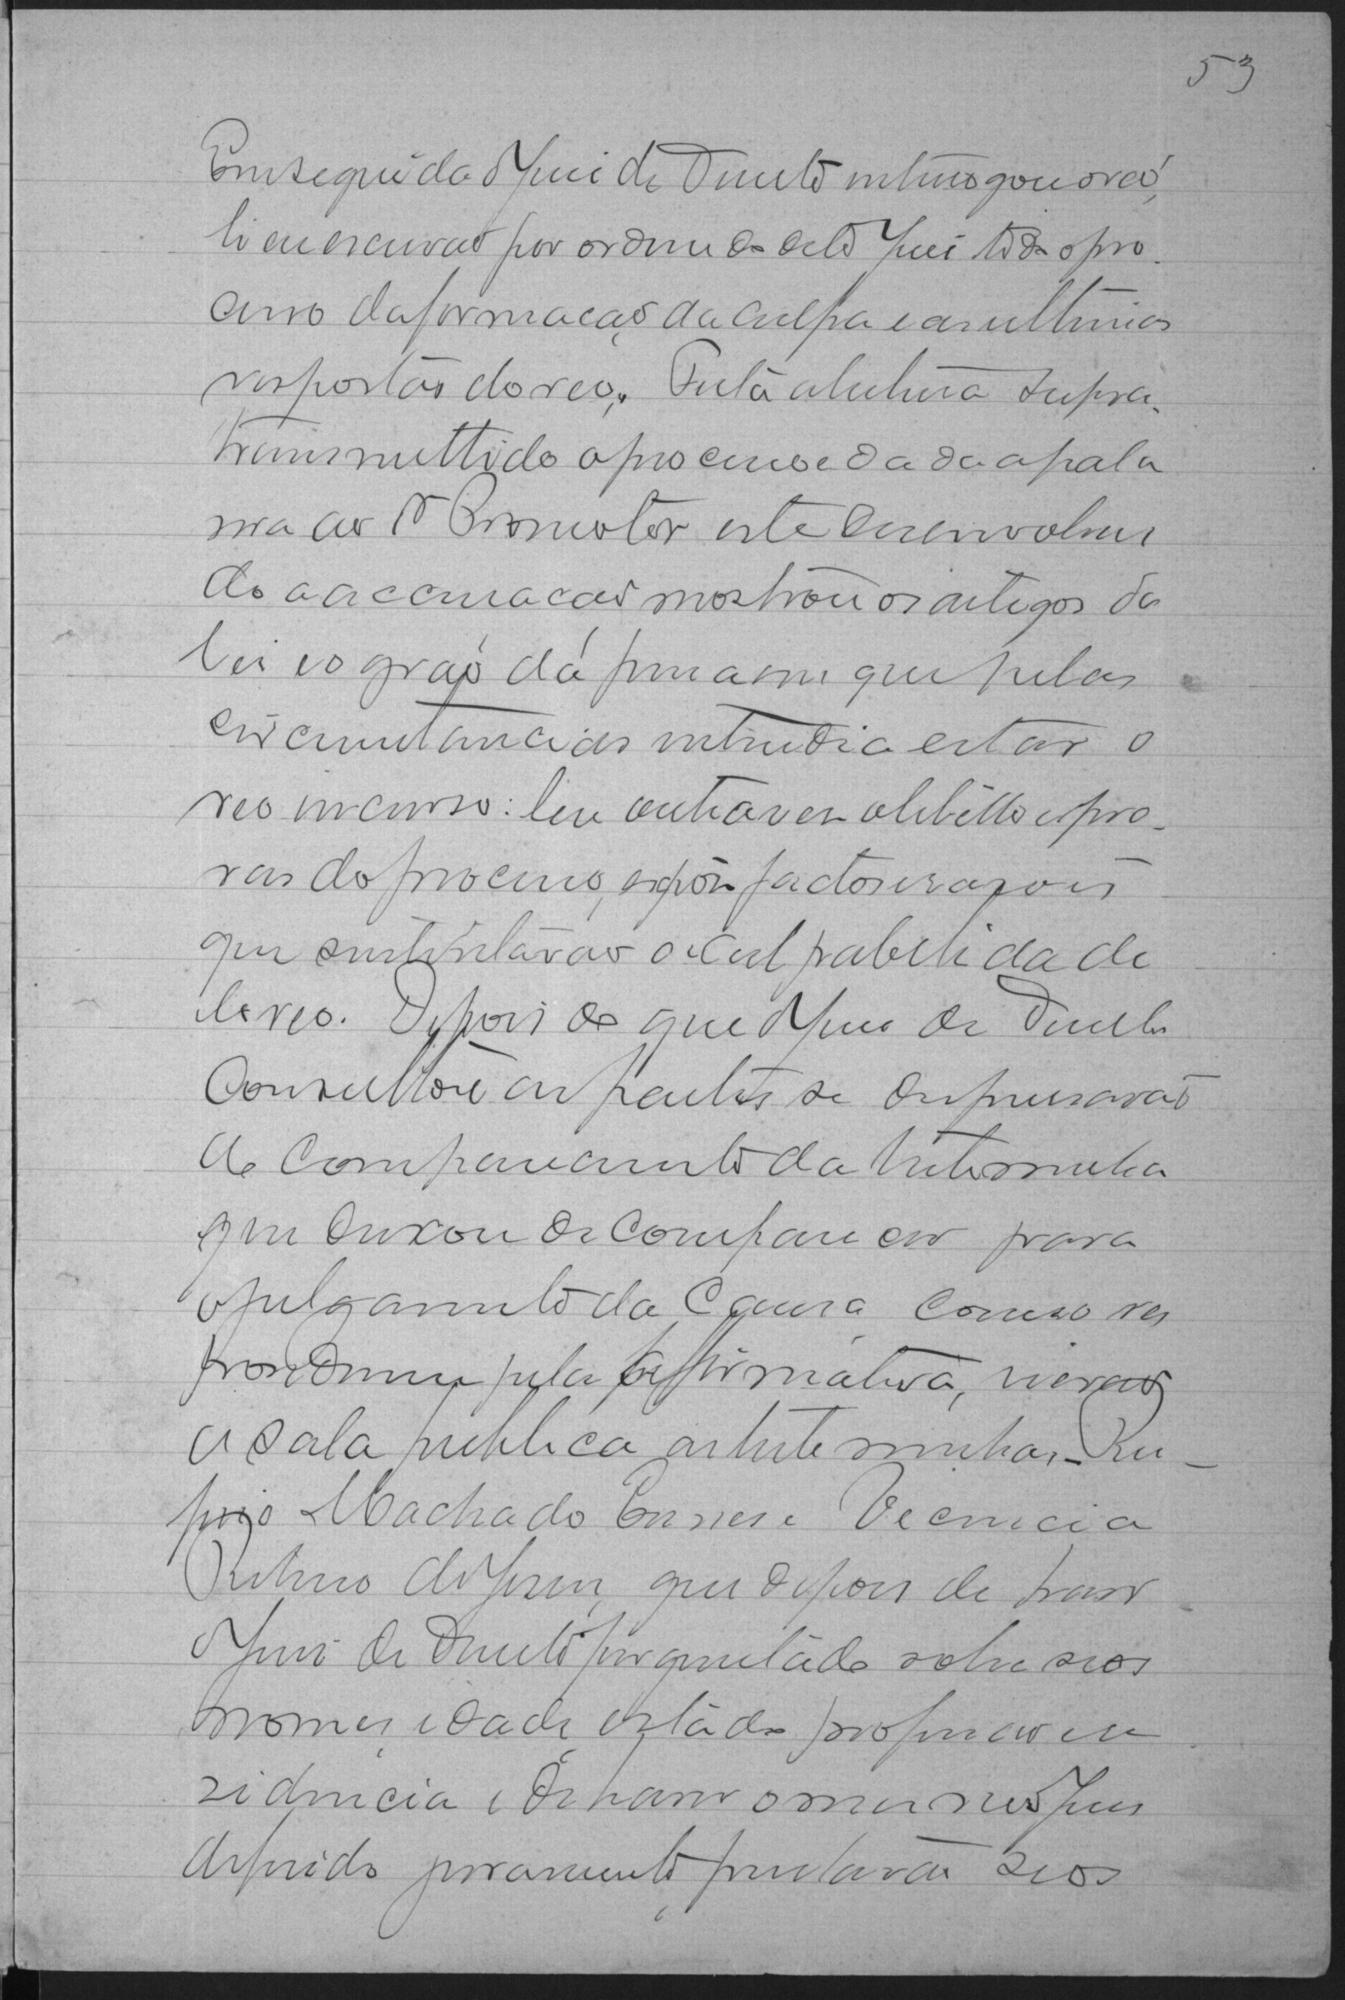 53
Em seguida o Juiz de Direito interrogou o reo,
li eu escrivão por ordem do dito Juiz todo o pro
cesso da formação da culpa e as ultimas
respostas do reo. Feita a leitura supra
transmettido o processo e dada a pala
vra ao Dr Promotor este desenvolven
do a accusação mostrou os artigos da
lei e o gráo da pena em que pelas
circumstancias entendia estar o
reo incurso: leu outra vez o libello e pro
vas do processo, expôz factos e razões
que sustentavão a culpabilidade
do reo. Depois do que o Juiz de Direito
consultou as partes se dispensavão
o comparecimento da testemunha
que deixou de comparecer para
o julgamento da causa como res
pondeu pela affirmativa, vierão
a sala publica as testemunhas - Ru
fino Machado Ennes e Vecencia
Ribeiro de Jesus, que depois de haver
o Juiz de Direito perguntado sobre seos
nomes, idade, estado, profissão e re
zidencia e de haver o mesmo Juiz
deferido juramento prestarão seos